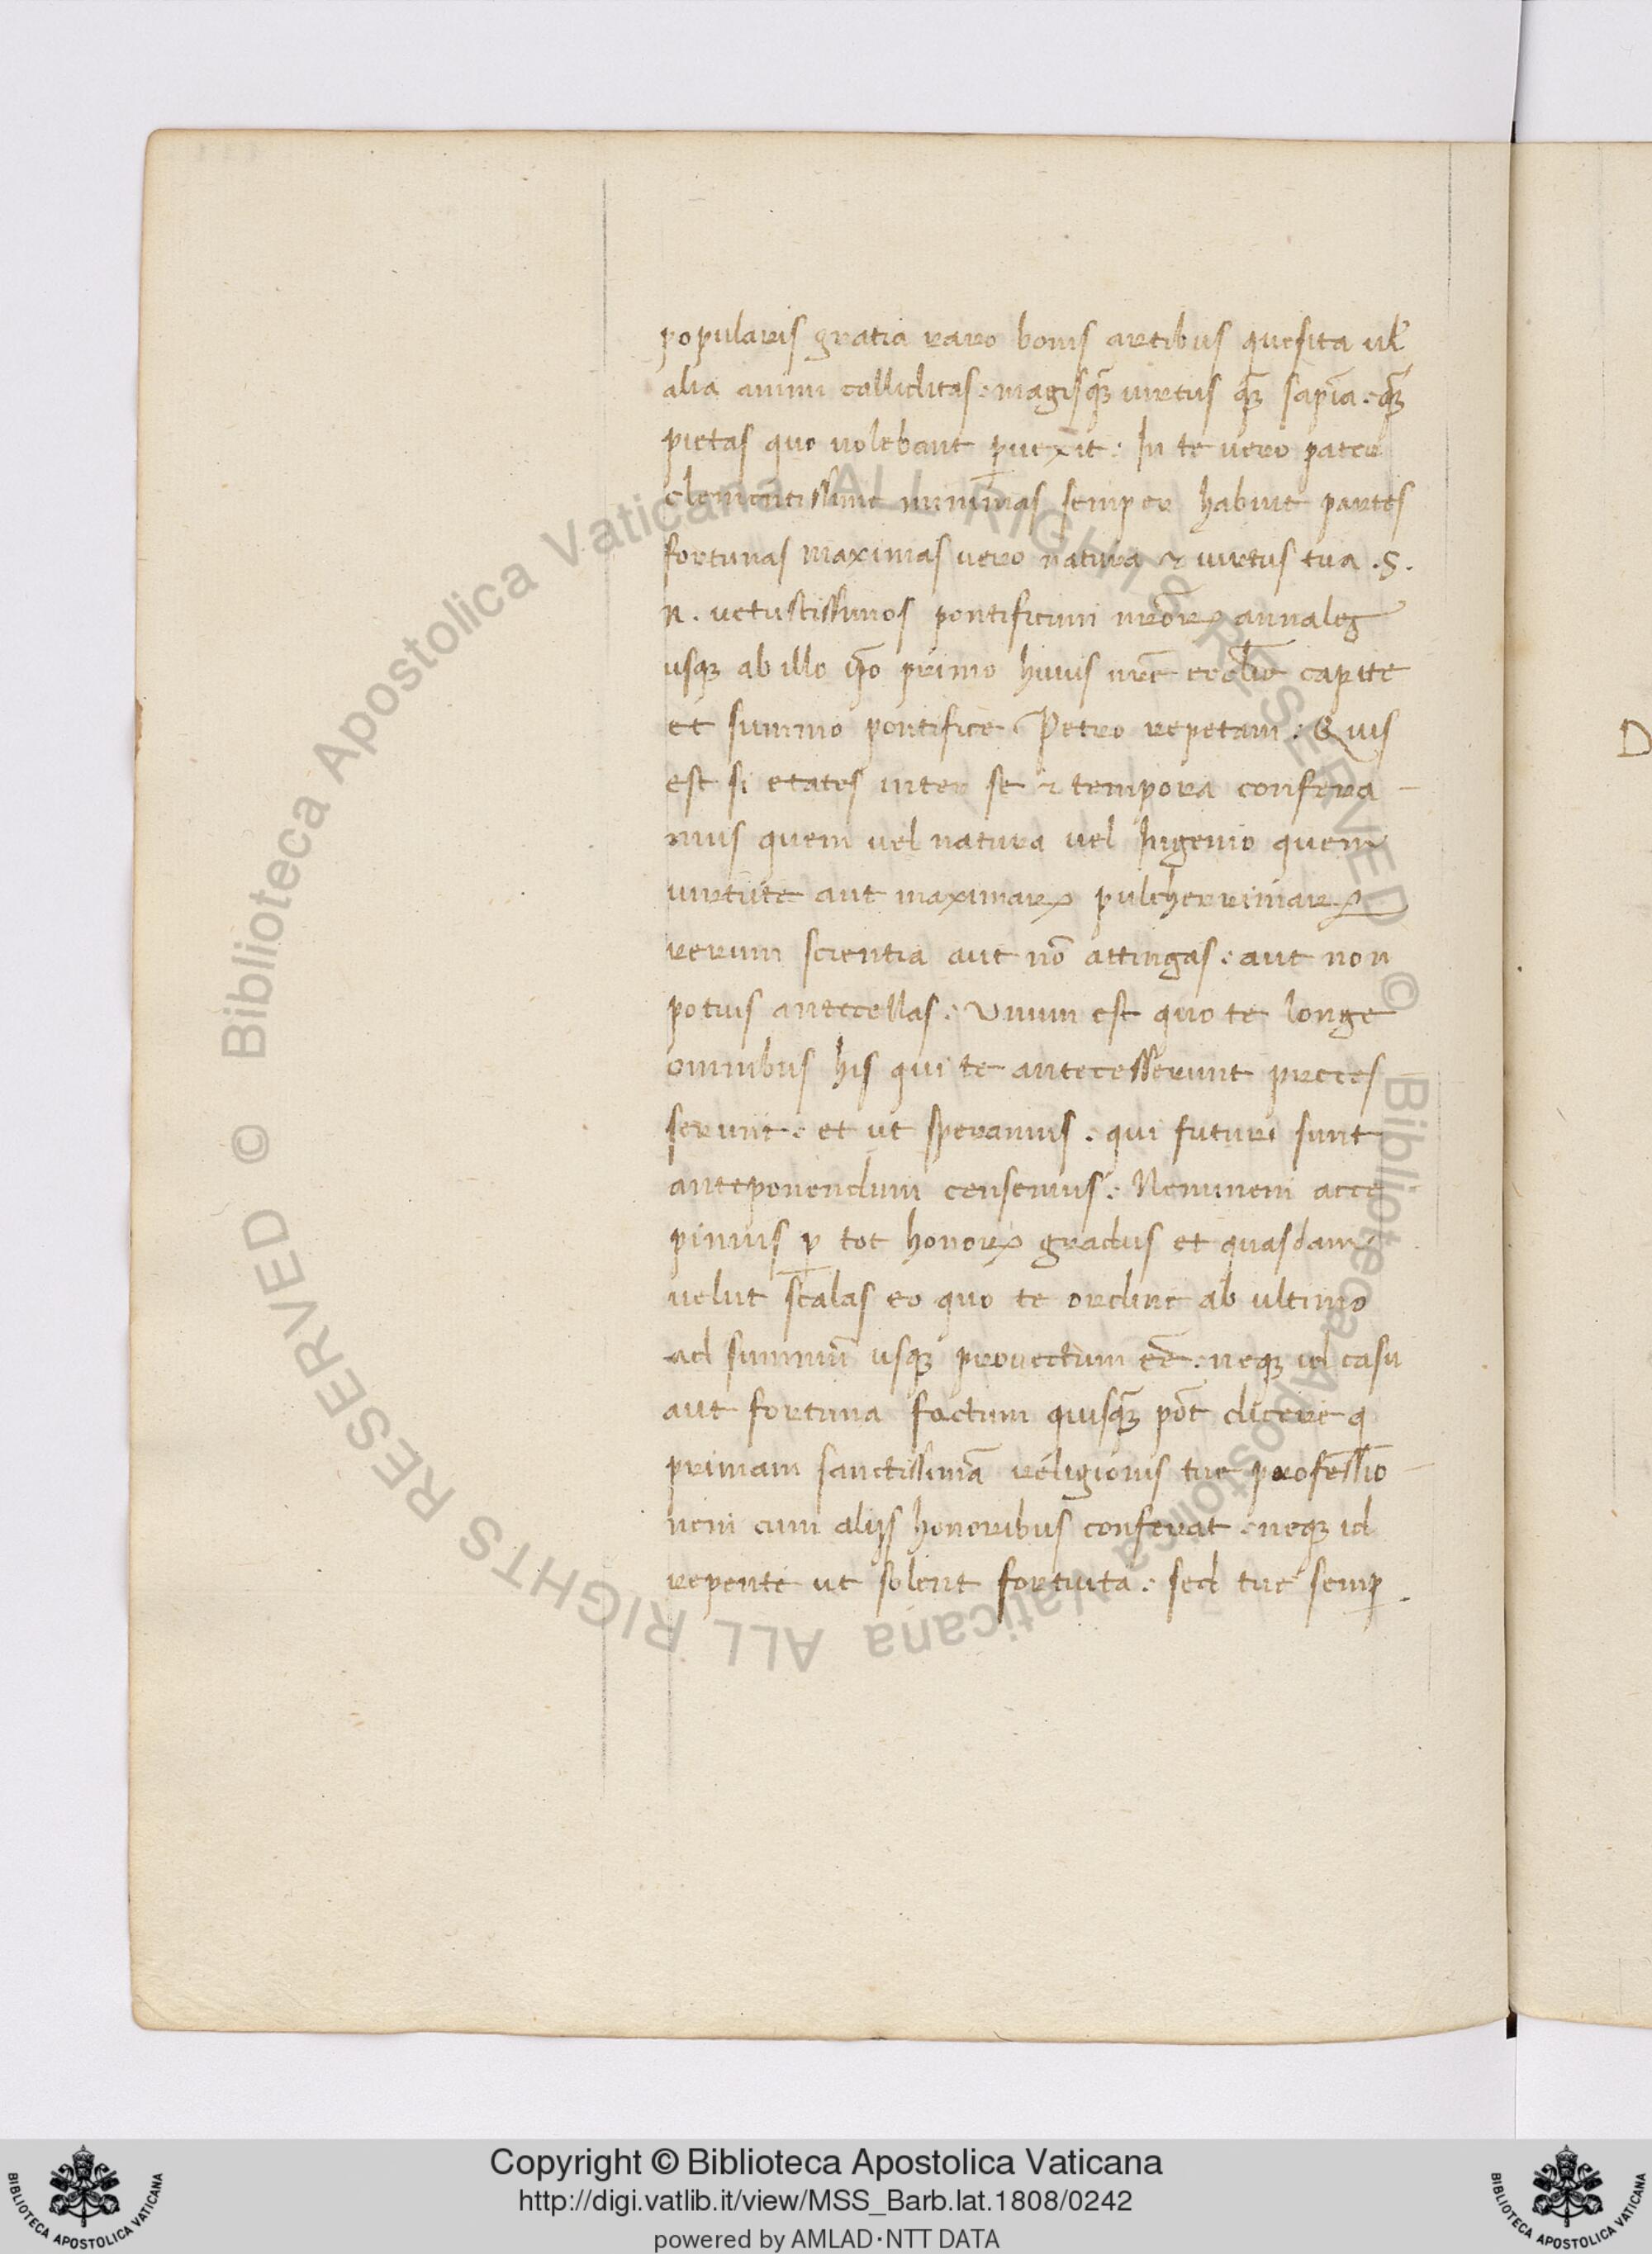 popularis gratia raro bonis artibus quesita ul̕
alia animi calliditas · magisqꝫ̃ uirtus qꝫ̃ sapĩa · qꝫ̃
pietas quo uolebant ꝓuexit : In te uero pater
clementissime minimas semper habuit partes
fortunas maximas uero natura ⁊ uirtus tua . S .
n . uetustissimos pontificum nr̃oꝝ annales
usqꝫ ab illo q̃o primo huius nr̃e eccl̃ie capite
et summo pontifice Petro repetam : Quis
est si etates inter se ⁊ tempora confera
mus quem uel natura uel Ingenio quem
uirtute aut maximaꝝ pulcherrimaꝝ
rerum scientia aut nõ attingas : aut non
potius antecellas : Unum est quo te longe
omnibus his qui te antecesserunt preces
serunt : et ut speramus . qui futuri sunt
anteponendum censemus : Neminem acce
pimus ꝑ tot honoꝝ gradus et quasdam
uelut scalas eo quo te ordine ab ultimo
ad summũ usqꝫ prouectum eẽ . neqꝫ id casu
aut fortuna factum quisqꝫ̃ põt dicere q
primam sanctissimã religionis tue professio
nem cum alijs honoribus conferat . neqꝫ id
repente ut solent fortuita : sed tue semꝑ .
D
© Biblioteca Apostolica Vaticana ALL RIGHTS RESERVED © Biblioteca Apostolica Vaticana ALL RIGHTS RESERVED
Copyright © Biblioteca Apostolica Vaticana
http://digi.vatlib.it/view/MSS_Barb.lat.1808/0242
powered by AMLAD·NTT DATA
BIBLIOTECA APOSTOLICA VATICANA
BIBLIOTECA APOSTOLICA VATICANA